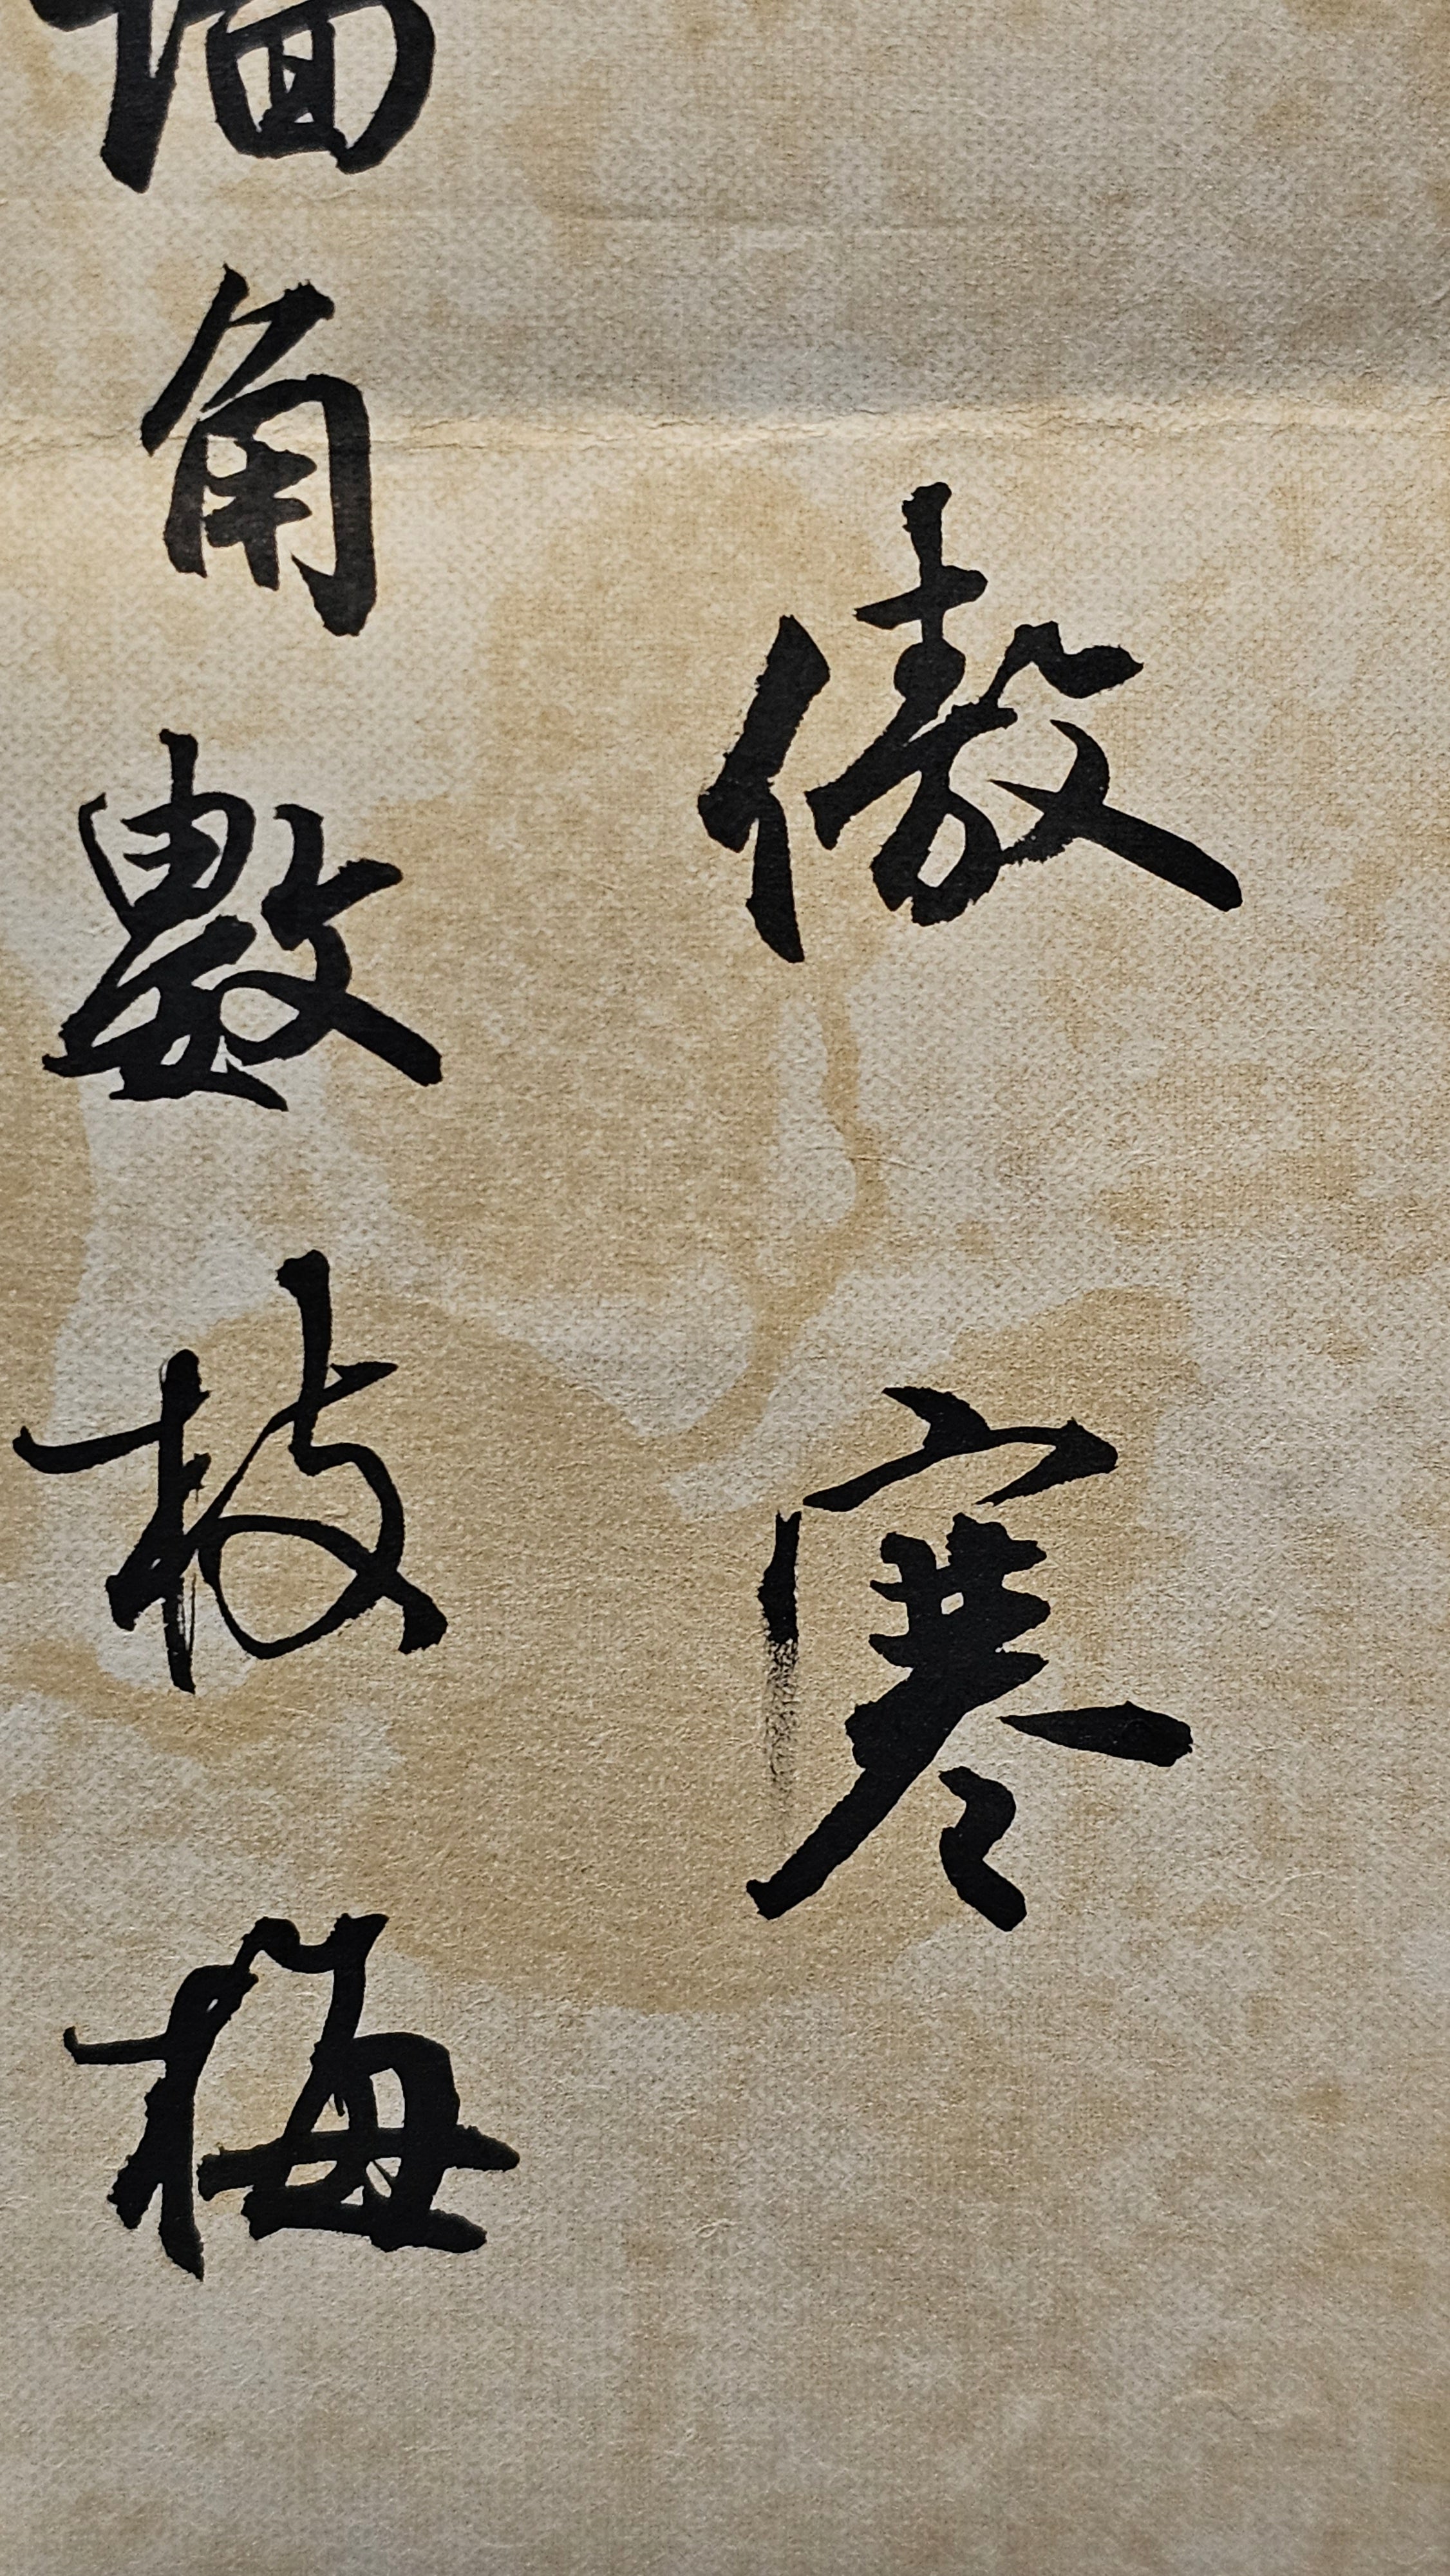 傲寒
墙角數枝梅